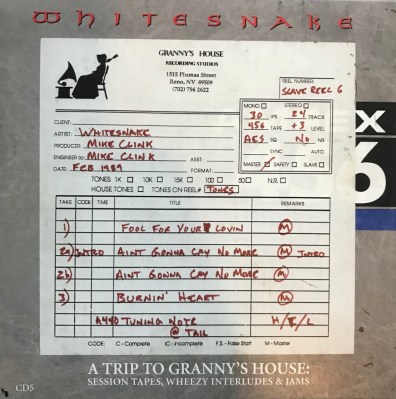 WHITESNAKE
GRANNY'S HOUSE
RECORDING STUDIOS
1515 Plumas Street
Reno, NV 89509
(702) 786 2622
REEL NUMBER:
SLAVE REEL 6
MONO STEREO
30 IPS 24 TRACK
456 TAPE +3 LEVEL
AES EQ No NR
SYNC AUTO
MASTER SAFETY SLAVE
CLIENT:
ARTIST: WHITESNAKE
PRODUCER: MIKE CLINK
ENGINEER: MIKE CLINK ASST:
DATE: FEB 1989 FORMAT:
TONES: 1K 10K 15K 100 50 N.R.
HOUSE TONES TONES ON REEL# TONES
X
6
TAKE CODE TIME TITLE REMARKS
1) FOOL FOR YOUR LOVIN M
2a) INTRO AINT GONNA CRY NO MORE M INTRO
2b) AINT GONNA CRY NO MORE M
3) BURNIN' HEART M
A440 TUNING NOTE H/T/L
@ TAIL
CODE: C - Complete IC - Incomplete F.S. - False Start M - Master
A TRIP TO GRANNY'S HOUSE:
SESSION TAPES, WHEEZY INTERLUDES & JAMS
CD5